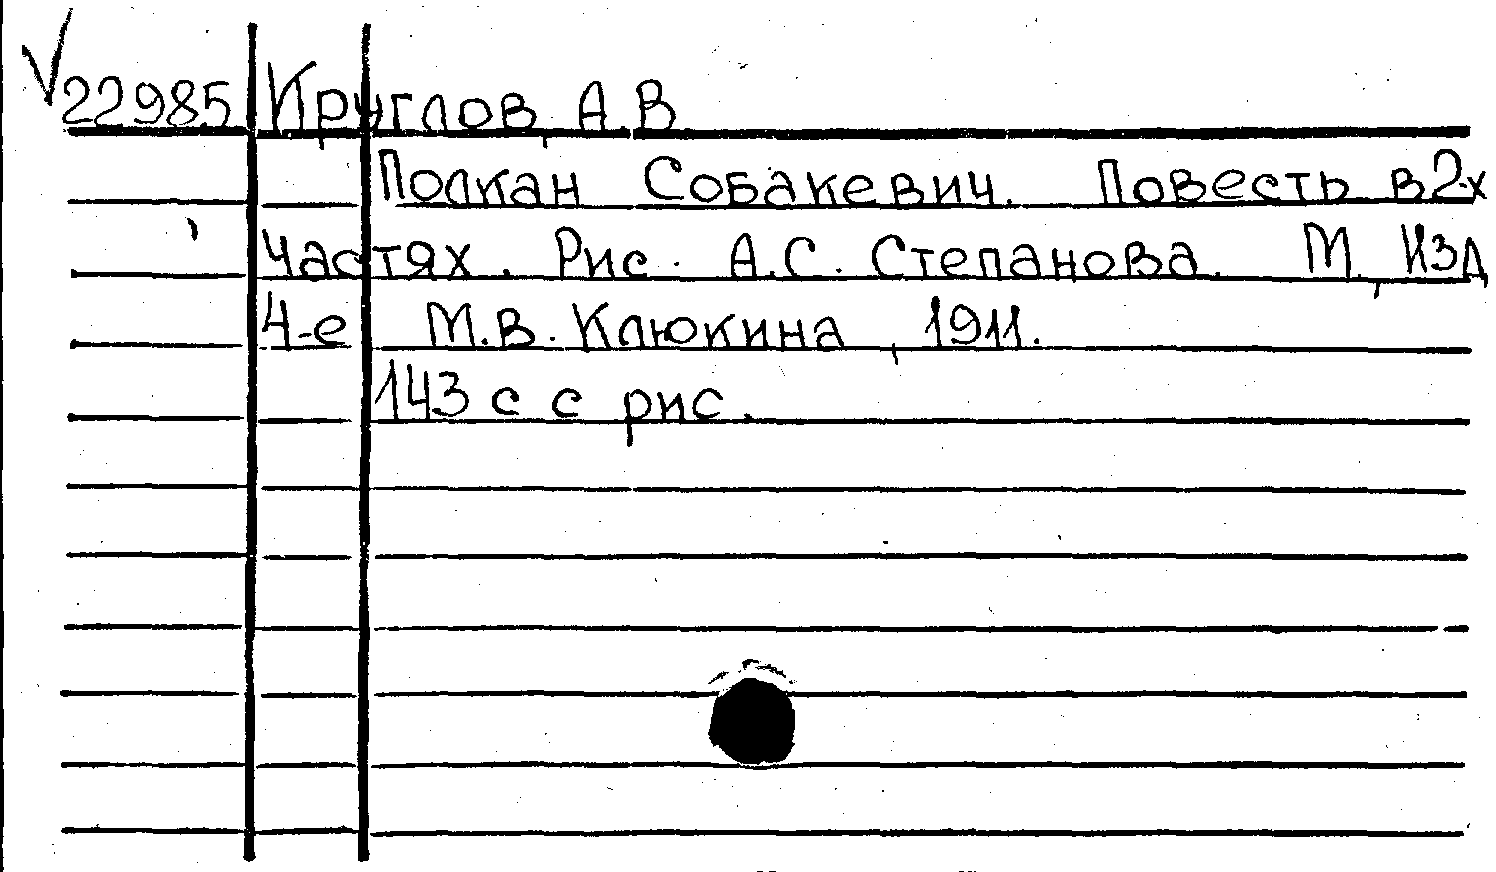 22985 Круглов, А.В
Полкан Собакевич. Повесть в 2-х
частях. Рис. А.С. Степанова. М, Изд
4-е М.В. Клюкина, 1911.
143 с с рис.